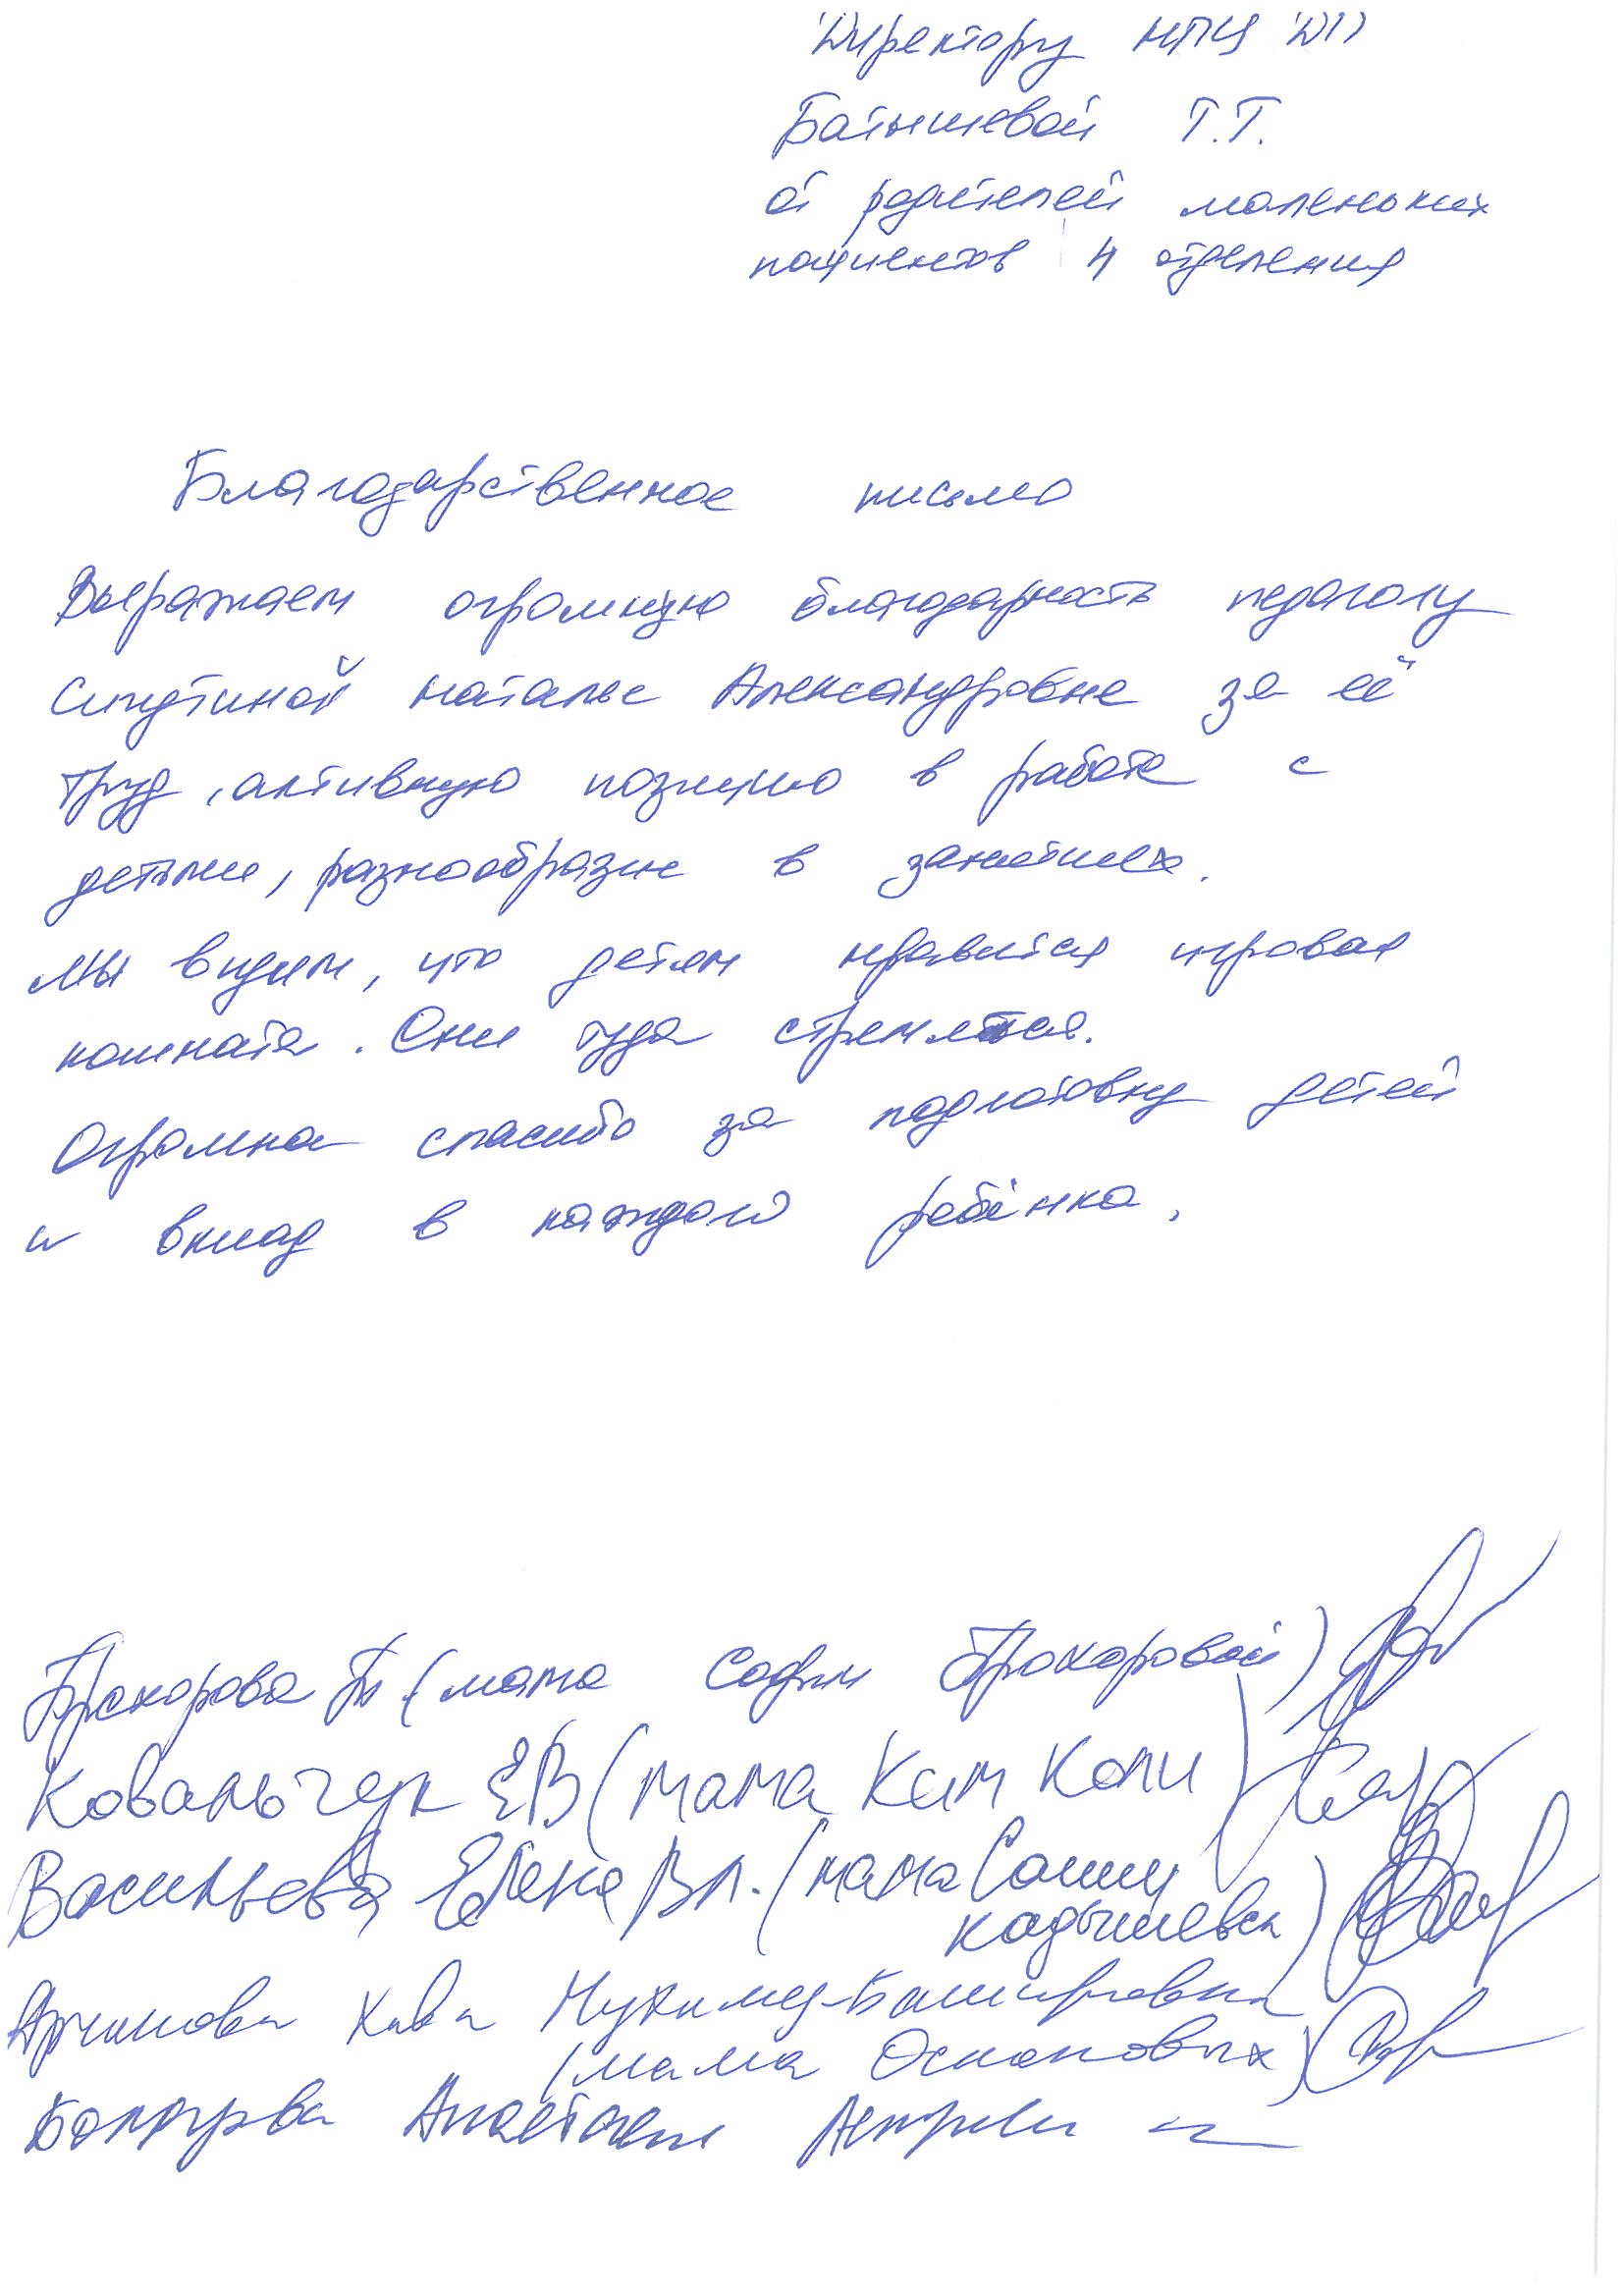 Директору НПЦ ДП
Батышевой Т.Т.
от родителей маленьких
пациентов 4 отделения
Благодарственное письмо
Выражаем огромную благодарность педагогу
Наталье Александровне за её
труд, активную позицию в работе с
детьми, разнообразие в занятиях.
Мы видим, что детям нравится игровая
комната. Они туда стремятся.
Огромна спасибо за подготовку детей
и вклад в каждого ребёнка.
Прохорова (мама Софии Прохоровой)
Ковальчук ЕВ (мама Ким Коли)
Васильева Елена Вл. (мама Саши
Хава
(мама Оскановых)